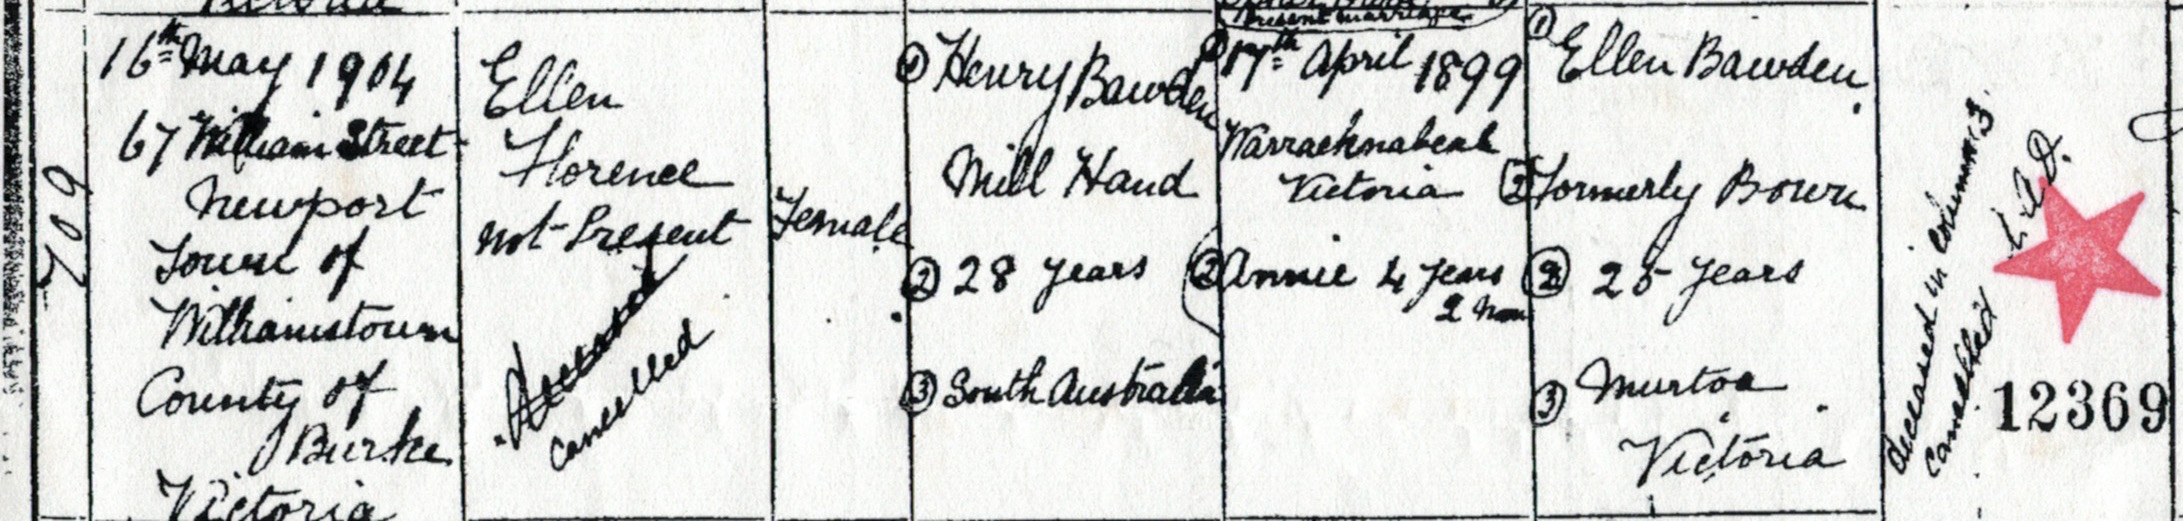 Present marriage
709
16th May 1904
67 William Street
Newport
Town of
Williamstown
County of
Burke
Victoria
Ellen
Florence
not Present
Deceased
cancelled
Female
① Henry Bawden
Mill Hand
② 28 years
③ South Australia
① 17th April 1899
Warracknabeal
Victoria
② Annie 4 years
2 mos
① Ellen Bawden
Formerly Bown
② 25 years
③ Murtoa
Victoria
deceased in column 3
Cancelled
12369